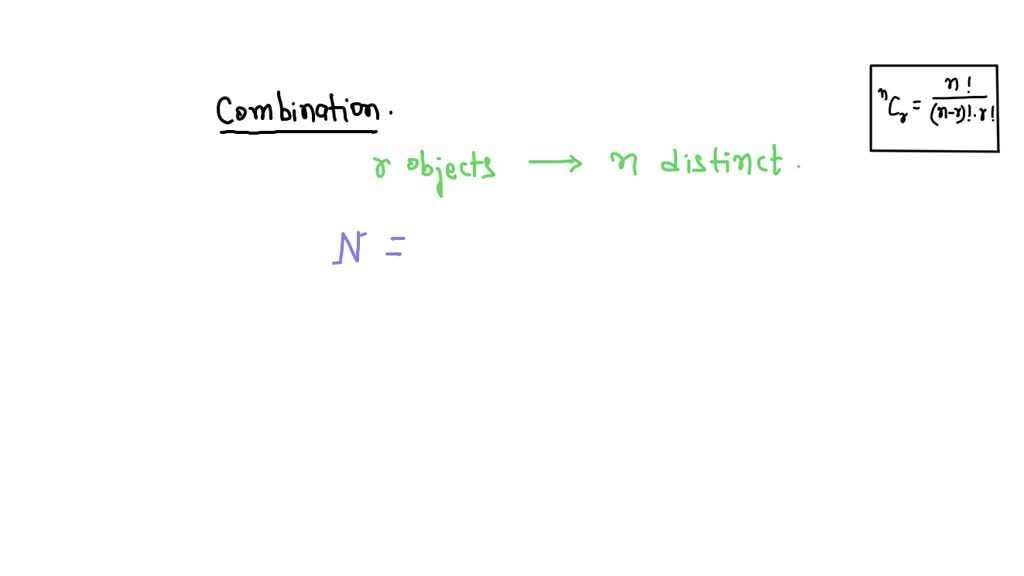 Combination.
r objects → n distinct.
N =
ⁿCᵣ = n! / (n-r)!·r!